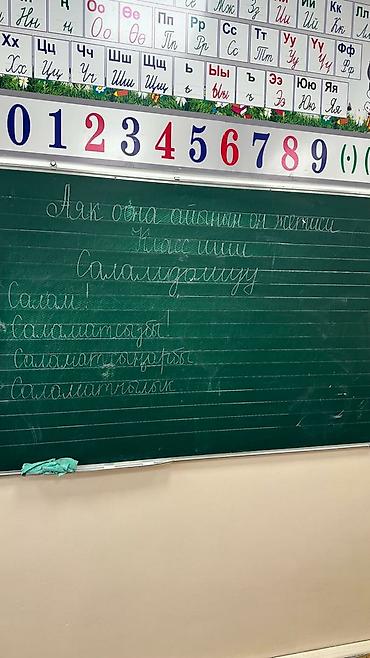 Ңң Оо Өө Пп Рр Сс Тт Уу Үү Фф
Хх Цц Чч Шш Щщ ъ Ыы ь Ээ Юю Яя
0 1 2 3 4 5 6 7 8 9 (·)
Аяк оона айынын он жетиси
Класс иши
Саламдашуу
Салам!
Саламатсызбы!
Саламатсыңарбы
Саламатчылык